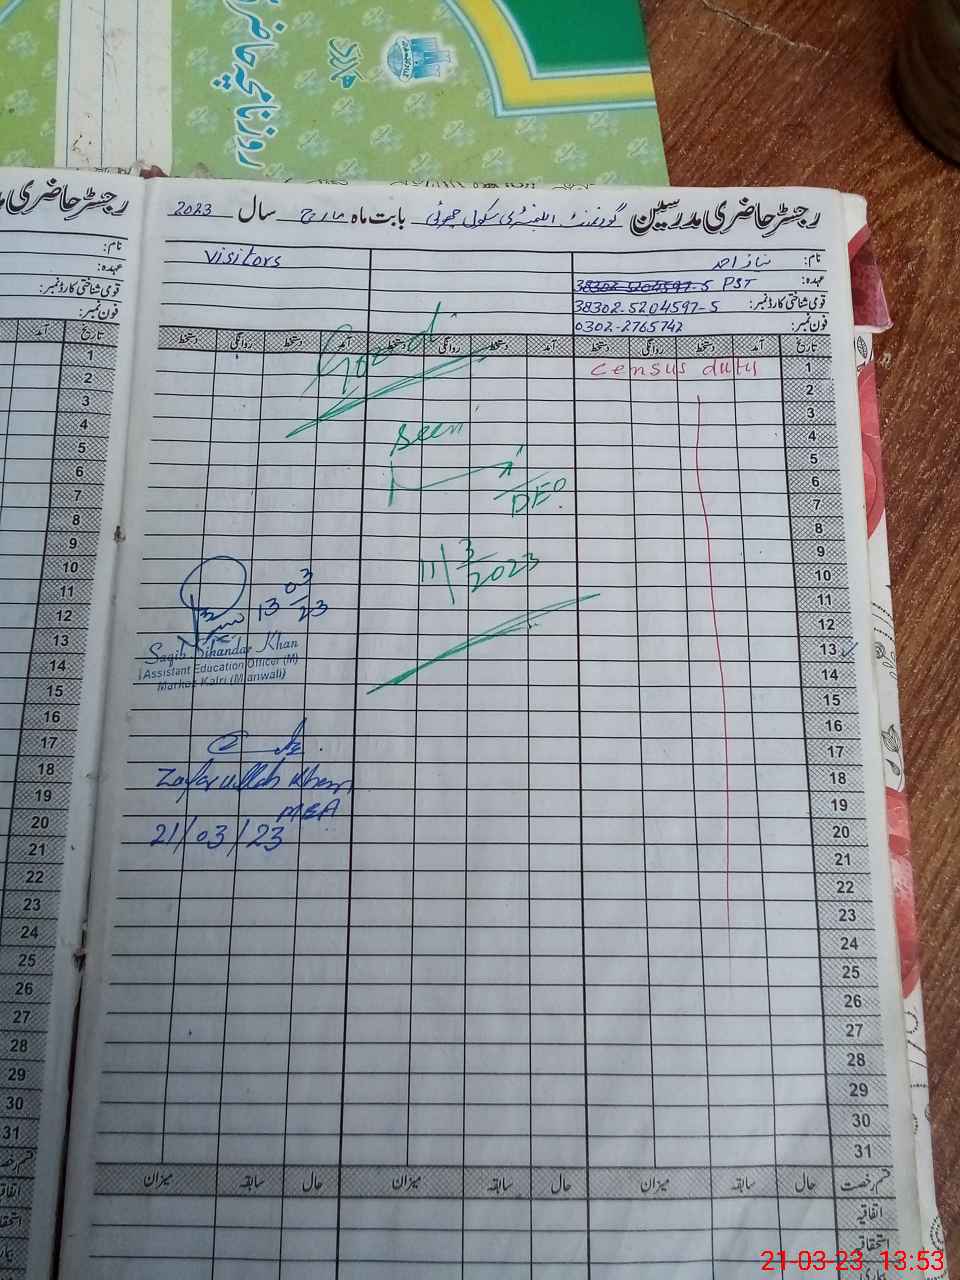 روزنامچہ حاضری
رجسٹر حاضری مدرسین گورنمنٹ ایلیمنٹری سکول بابت ماہ مارچ سال 2023
رجسٹر حاضری
نام: نیاز احمد
Visitors
عہدہ: PST
38302-5204597-5
قومی شناختی کارڈ نمبر: 38302-5204597-5
فون نمبر: 0302-2765742
نام:
عہدہ:
قومی شناختی کارڈ نمبر:
فون نمبر:
تاریخ آمد دستخط روانگی دستخط آمد دستخط روانگی دستخط آمد دستخط روانگی دستخط
تاریخ آمد
Census duty
Good
Seen
DEO
11/3/2023
13 03/23
Saqib Sikandar Khan
Assistant Education Officer (M)
Markaz Kalri (Mianwali)
Zafar ullah Khan
MEA
21/03/23
1
2
3
4
5
6
7
8
9
10
11
12
13
14
15
16
17
18
19
20
21
22
23
24
25
26
27
28
29
30
31
1
2
3
4
5
6
7
8
9
10
11
12
13
14
15
16
17
18
19
20
21
22
23
24
25
26
27
28
29
30
31
قسم رخصت حال سابقہ میزان حال سابقہ میزان حال سابقہ میزان
اتفاقیہ
استحقاقی
بیماری
21-03-23 13:53